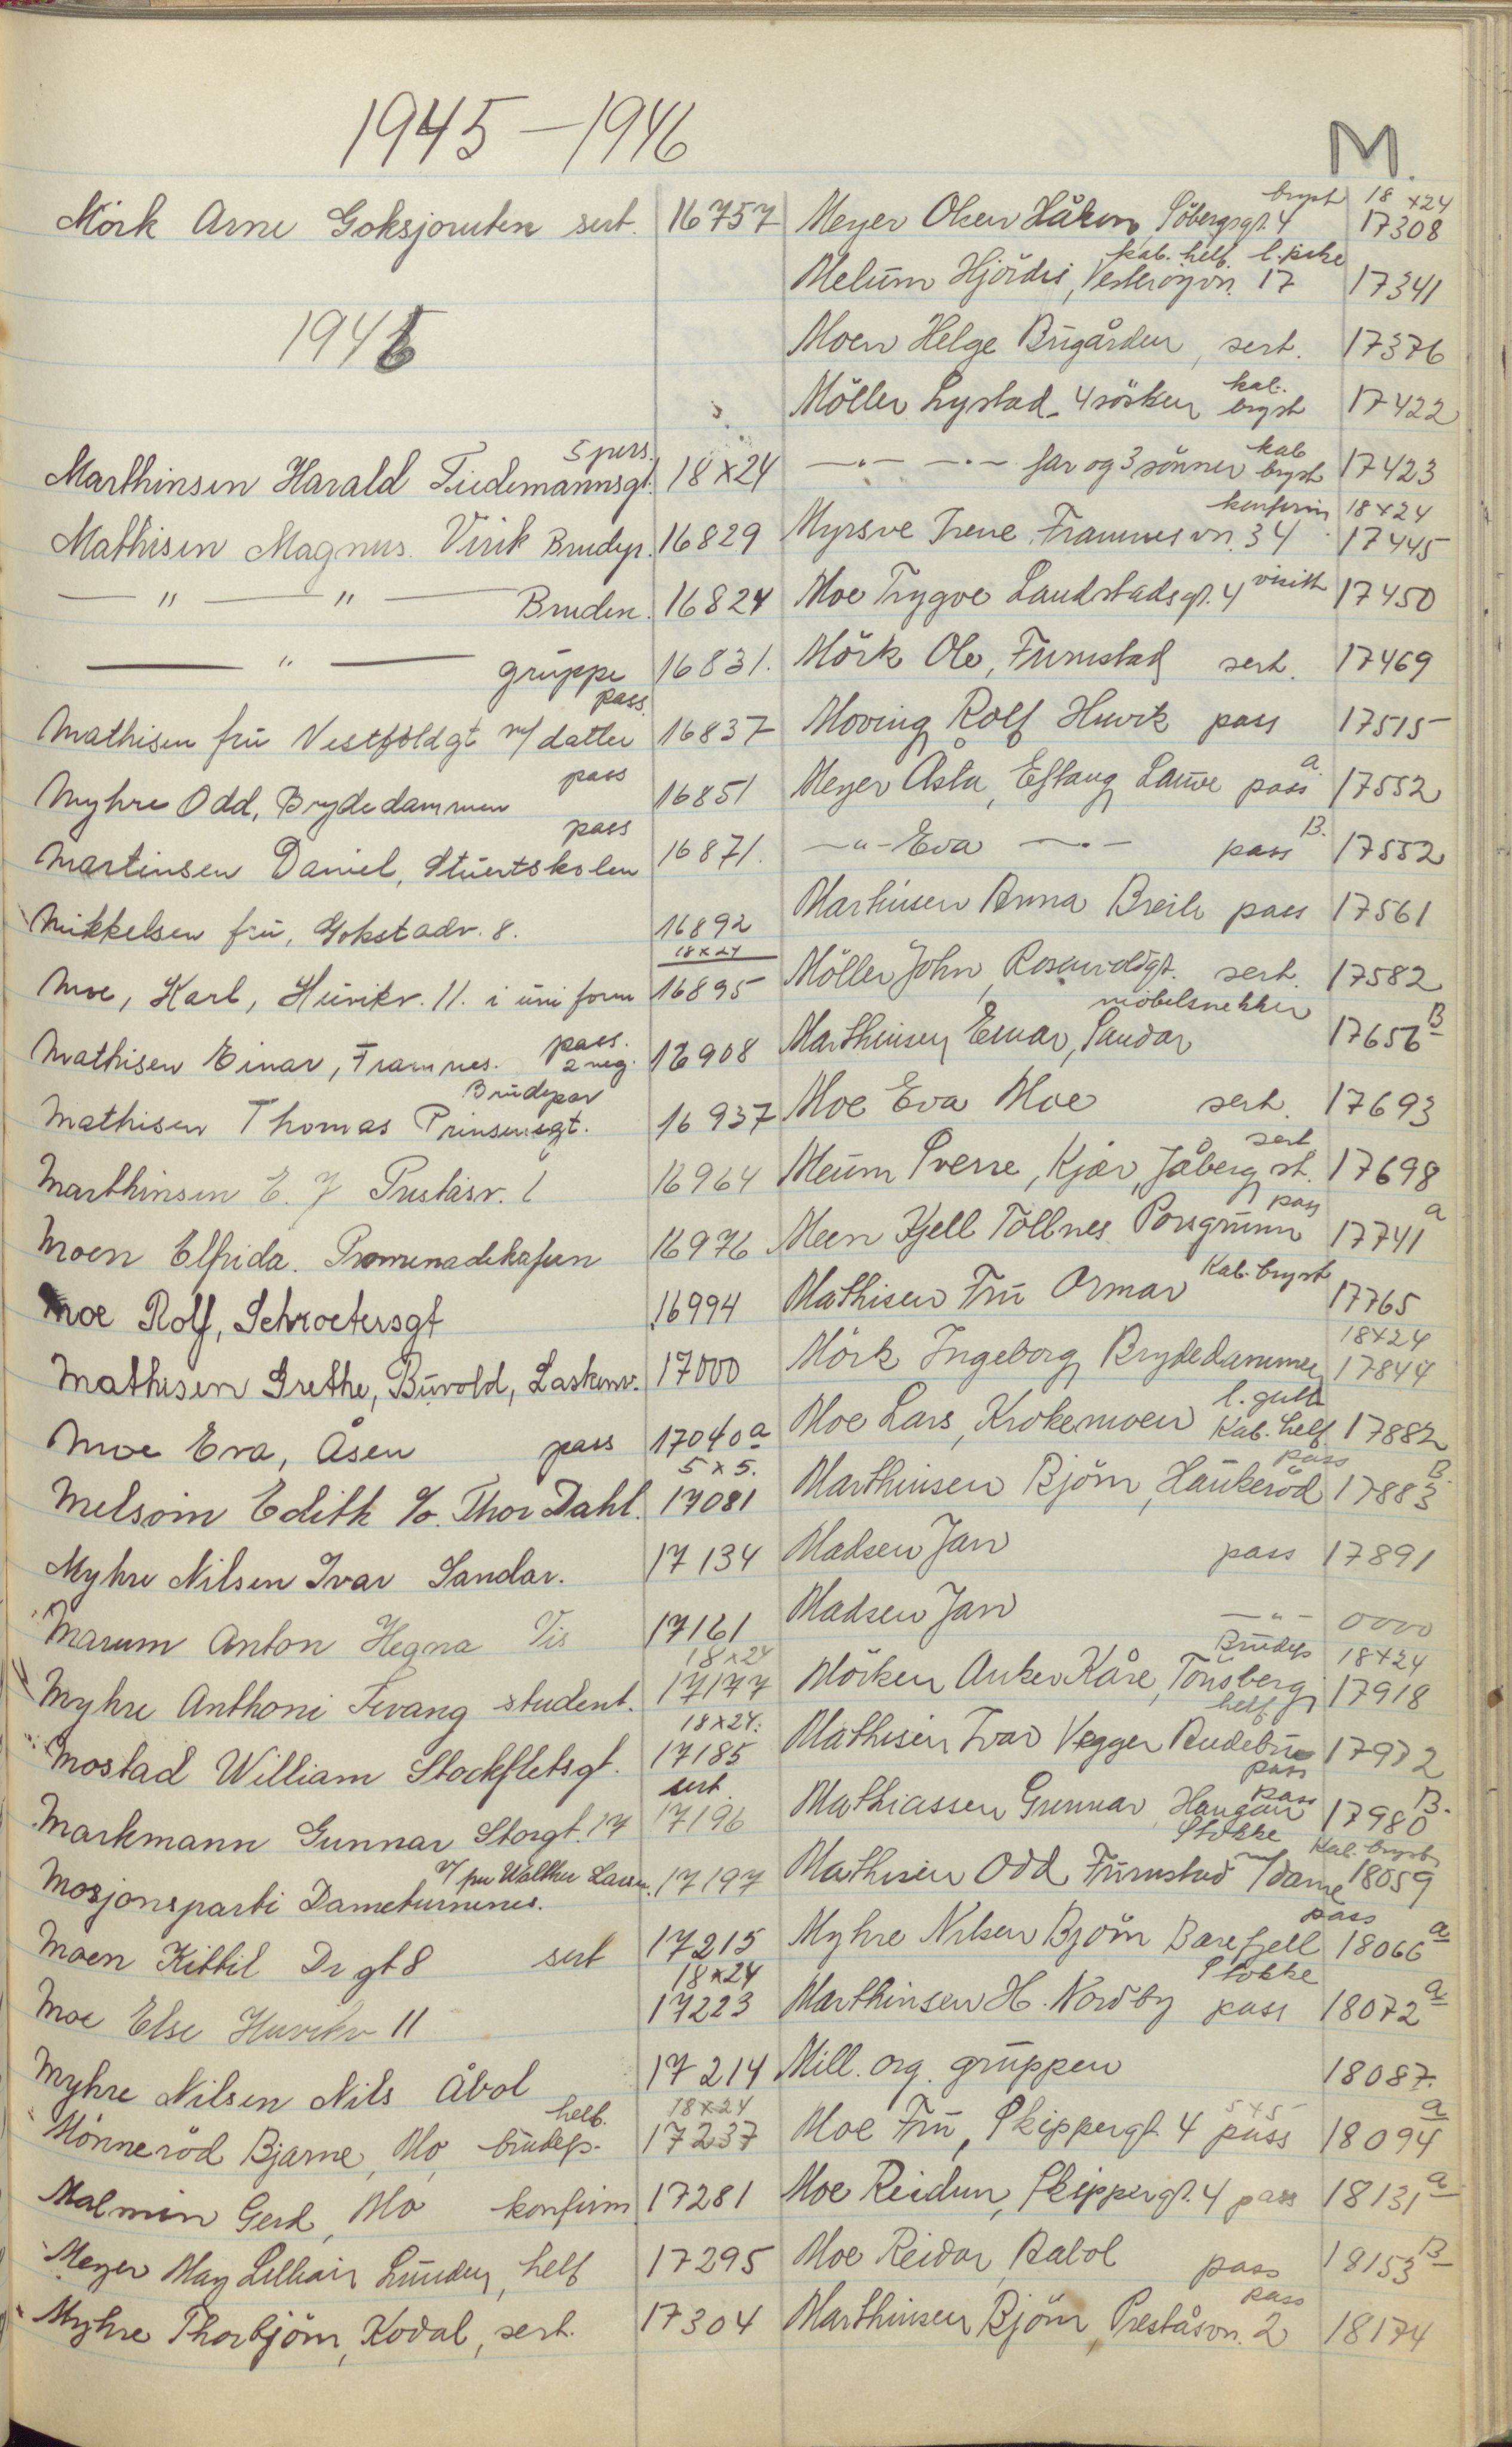 1945-1946
M.
Mörk Arne Goksjoruten sert. 16757
1946
5 pers.
Marthinsen Harald Tiedemannsgt. 18x24
Mathisen Magnus. Virik Brudep. 16829
— " — " — Bruden. 16824
— " — gruppe 16831.
pass.
Mathisen frü Vestfoldgt m/ datter 16837
pass
Myhre Odd, Brydedammen 16851
pass
Martinsen Daniel, Stuertskolen 16871.
Mikkelsen frü, Gokstadv. 8. 16892
18x24
Moe, Karl, Hüvikv. 11. i üniform 16895
pass.
Mathisen Einar, Framnes. 2 neg. 16908
Brüdepar
Mathisen Thomas Prinsensgt. 16937
Marthinsen E. J Preståsv. 1 16964
Moen Elfrida. Promenadekafeen 16976
Moe Rolf, Schroetersgt 16994
Mathisen Grethe, Büvold, Laskenv. 17000
Moe Eva, Åsen pass 17040 a
5x5.
Melsom Edith c/o. Thor Dahl. 17081
Myhre Nilsen Ivar Sandar. 17134
Marum Anton Hegna Vis 17161
18x24
Myhre Anthoni Fevang student. 17177
18x24.
Mostad William Stockfletsgt. 17185
sert.
Markmann Gunnar Storgt. 17 17196
v/ frü Walther Larsen.
Mosjonsparti Dameturnenes. 17197
Moen Kittil Dr gt 8 sert 17215
18x24
Moe Else Huvikv 11 17223
Myhre Nilsen Nils Åbol 17214
helf. 18x24
Mönneröd Bjarne, Mo, brüdep. 17237
Malmin Gerd, Mo konfirm 17281
Meyer May Lillian Lünden, helf 17295
Myhre Thorbjörn, Kodal, sert. 17304
bryst 18x24
Meyer Olsen Håkon, Söbergsgt. 4 17308
kab. helf. l. pike
Melüm Hjördis, Vesteröyvn. 17 17341
Moen Helge Bügården, sert. 17376
kab.
Möller Lystad - 4 sösken bryst 17422
kab
—.— —.— far og 3 sönner bryst 17423
konfirm 18x24
Myrsve Irene Framnesvn. 34 17445
Moe Trygve Landstadsgt. 4 visitt 17450
Mörk Ole, Fürustad sert. 17469
Moving Rolf Huvik pass 17515
Meyer Åsta, Eftang Lauve pass a. 17552
—"— Eva —.— pass B. 17552
Marthinsen Anna Breili pass 17561
Möller John, Rosenvoldgt. sert. 17582
möbelsnekker
Marthinsen Einar, Sandar 17656 B
Moe Eva Moe sert. 17693
sert
Meüm Sverre, Kjær, Jåberg st. 17698
pass
Meen Kjell Tollnes Porsgrünn 17741 a
Mathisen Frü Ormar Kab. bryst 17765
18x24
Mörk Ingeborg Brydedammen 17844
l. gutt
Moe Lars, Krokemoen Kab. helf. 17882
pass
Marthinsen Björn, Haukeröd 17883 B.
Madsen Jan pass 17891
Madsen Jan —"— 0000
Brüdep 18x24
Mörken Anker Kåre, Tönsberg 17918
helf.
Mathisen Ivar Vegger Andebü 17972
pass
pass
Mathiassen Gunnar Haugan 17980 B.
Stokke Kab. bryst
Mathisen Odd Fürustad m/ dame 18059
pass
Myhre Nilsen Björn Barefjell 18066 a
Stokke
Marthinsen H. Nordby pass 18072 a
Mill. org. grüppen 18087.
5x5
Moe Frü, Skippergt. 4 pass 18094 a
Moe Reidun, Skippergt. 4 pass 18131 a
Moe Reidar, Råbol pass 18153 B
pass
Marthinsen Björn Preståsvn. 2 18174